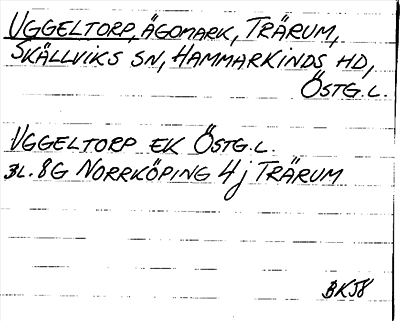 UGGELTORP, ÄGOMARK, TRÄRUM,
SKÄLLVIKS SN, HAMMARKINDS HD,
ÖSTG.L.
UGGELTORP EK ÖSTG.L.
BL. 8G NORRKÖPING 4j TRÄRUM
BK58